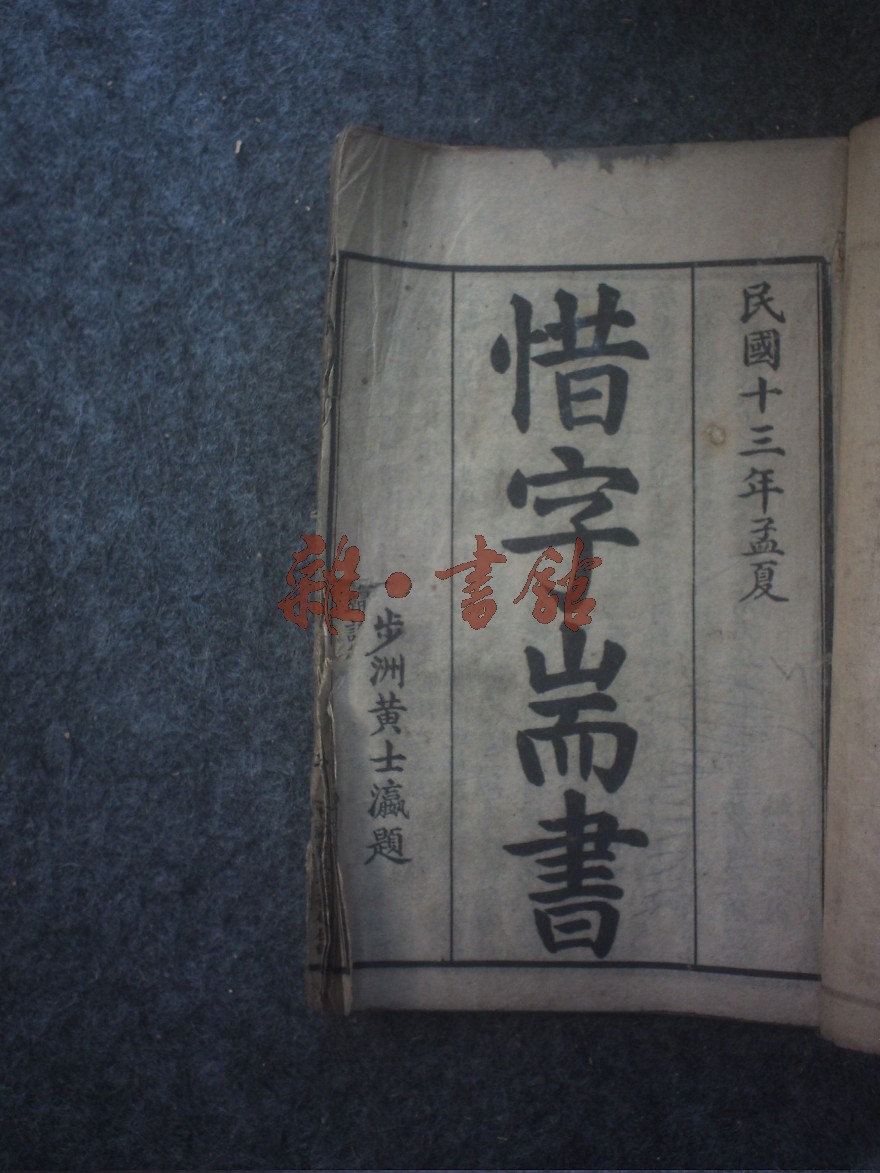 民國十三年孟夏
惜字耑書
步洲黄士瀛題
雜·書舘